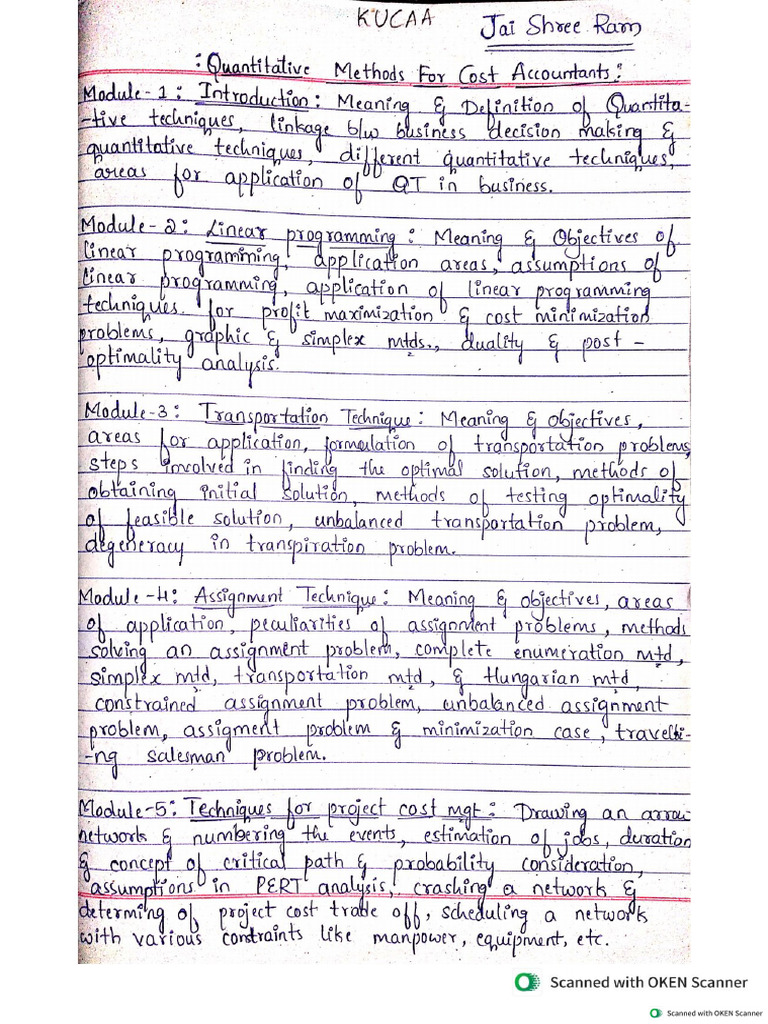 KUCAA
Jai Shree Ram
: Quantitative Methods For Cost Accountants :
Module - 1 : Introduction : Meaning & Definition of Quantita-
-tive techniques, linkage b/w business decision making &
quantitative techniques, different quantitative techniques,
areas for application of QT in business.
Module - 2 : Linear programming : Meaning & Objectives of
linear programming, application areas, assumptions of
linear programming, application of linear programming
techniques. for profit maximization & cost minimization
problems, graphic & simplex mtds., duality & post -
optimality analysis.
Module - 3 : Transportation Technique : Meaning & objectives,
areas for application, formulation of transportation problems,
steps involved in finding the optimal solution, methods of
obtaining initial solution, methods of testing optimality
of feasible solution, unbalanced transportation problem,
degeneracy in transpiration problem.
Module - 4 : Assignment Technique : Meaning & objectives, areas
of application, peculiarities of assignment problems, methods
solving an assignment problem, complete enumeration mtd,
simplex mtd, transportation mtd, & Hungarian mtd,
constrained assignment problem, unbalanced assignment
problem, assigment problem & minimization case, travelli-
-ng salesman problem.
Module - 5 : Techniques for project cost mgt : Drawing an arrow
network & numbering the events, estimation of jobs, duration
& concept of critical path & probability consideration,
assumptions in PERT analysis, crashing a network &
determing of project cost trade off, scheduling a network
with various contraints like manpower, equipment, etc.
Scanned with OKEN Scanner
Scanned with OKEN Scanner